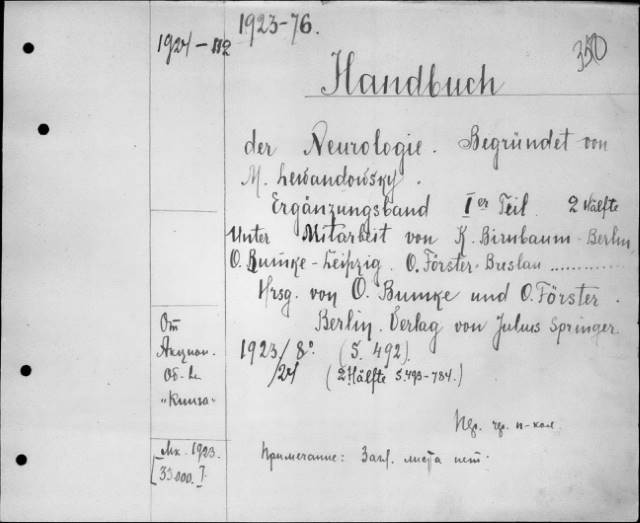 1923-76.
1924-112
350
Handbuch
der Neurologie. Begründet von
M. Lewandowsky.
Ergänzungsband Ier Teil 2 Hälfte
Unter Mitarbeit von K. Birnbaum-Berlin,
O. Bumke-Leipzig. O. Förster-Breslau ............
Hrsg. von O. Bumke und O. Förster.
Berlin. Verlag von Julius Springer
1923/8° (S. 492).
/24 (2 Hälfte S. 493-784.)
От
Акцион.
Об-ва
"Книга"
Пер. чер. п-кол.
1923.
[35000.]
Примечание: Загл. листа нет.